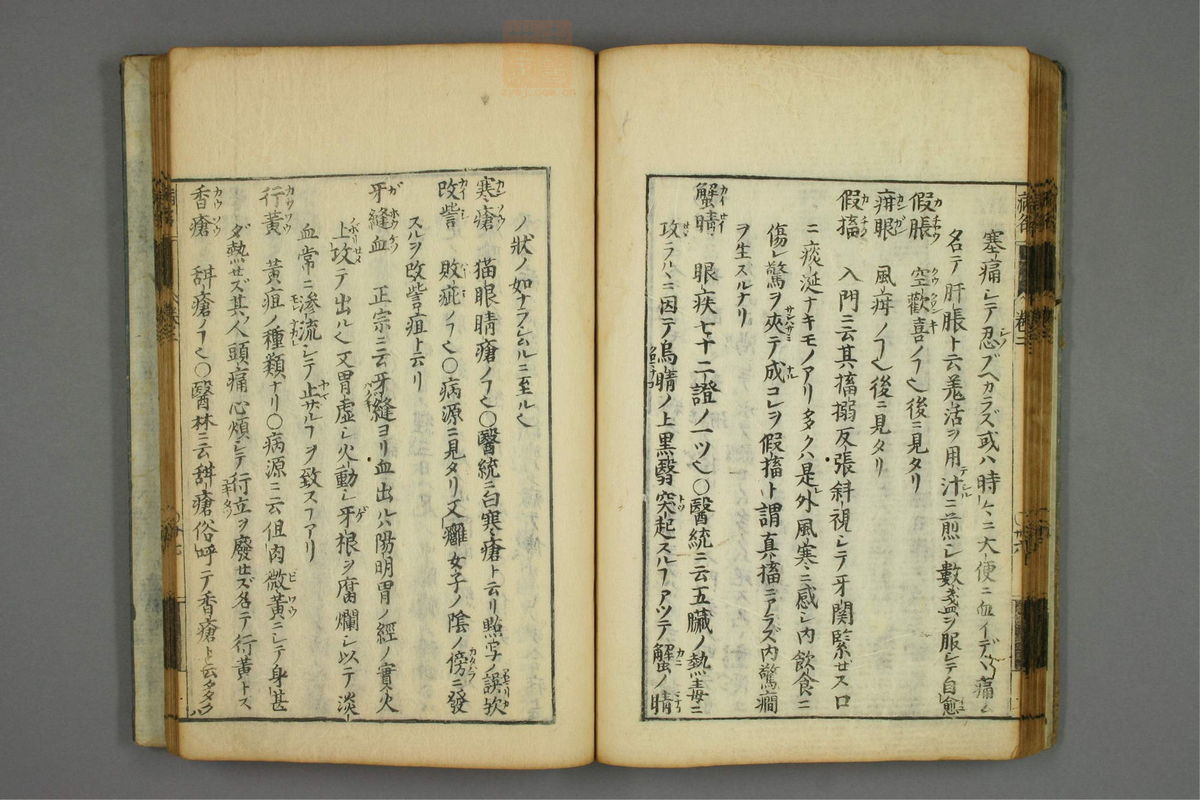 塞痛シテ忍ブヘカラズ或ハ時々ニ大便ニ血イデヽ痛ム
名テ肝脹ト云羗活ヲ用汁ニ煎シ數盞ヲ服シテ自愈
假脹 空歡喜ノヿ也後ニ見タリ
疳眼 風疳ノヿ也後ニ見タリ
假搐 入門ニ云其搐搦反張斜視シテ牙關緊セス口
ニ痰涎ナキモノアリ多クハ是レ外風寒ニ感シ内飲食ニ
傷レ驚ヲ夾テ成コレヲ假搐ト謂真搐ニアラズ内驚癇
ヲ生スルナリ
蟹睛 眼疾七十二證ノ一ツ也○醫統ニ云五臟ノ熱毒ニ
攻ラルヽニ因テ烏睛ノ上黒翳突起スルヿアツテ蟹ノ睛
ノ狀ノ如ナラシムルニ至ル也
寒瘡 猫眼睛瘡ノヿ也○醫統ニ曰寒瘡ト云リ點写ノ誤歟
㿉 敗疵ノヿ也○病源ニ見タリ又癰女子ノ陰ノ傍ニ發
スルヲ改訾疽ト云リ
牙縫血 正宗ニ云牙縫ヨリ血出ルハ陽明胃ノ經ノ實火
上攻テ出ル也又胃虚シ火動シ牙根ヲ腐爛シ以テ淡
血常ニ滲流シテ止ザルヿヲ致スヿアリ
行黄 黄疸ノ種類ナリ○病源ニ云但肉微黄ニシテ身甚
ダ熱セズ其人頭痛心煩シテ行立ヲ廢セズ名テ行黄トス
香瘡 瘡ノヿ也○醫林ニ云瘡俗呼テ香瘡ト云